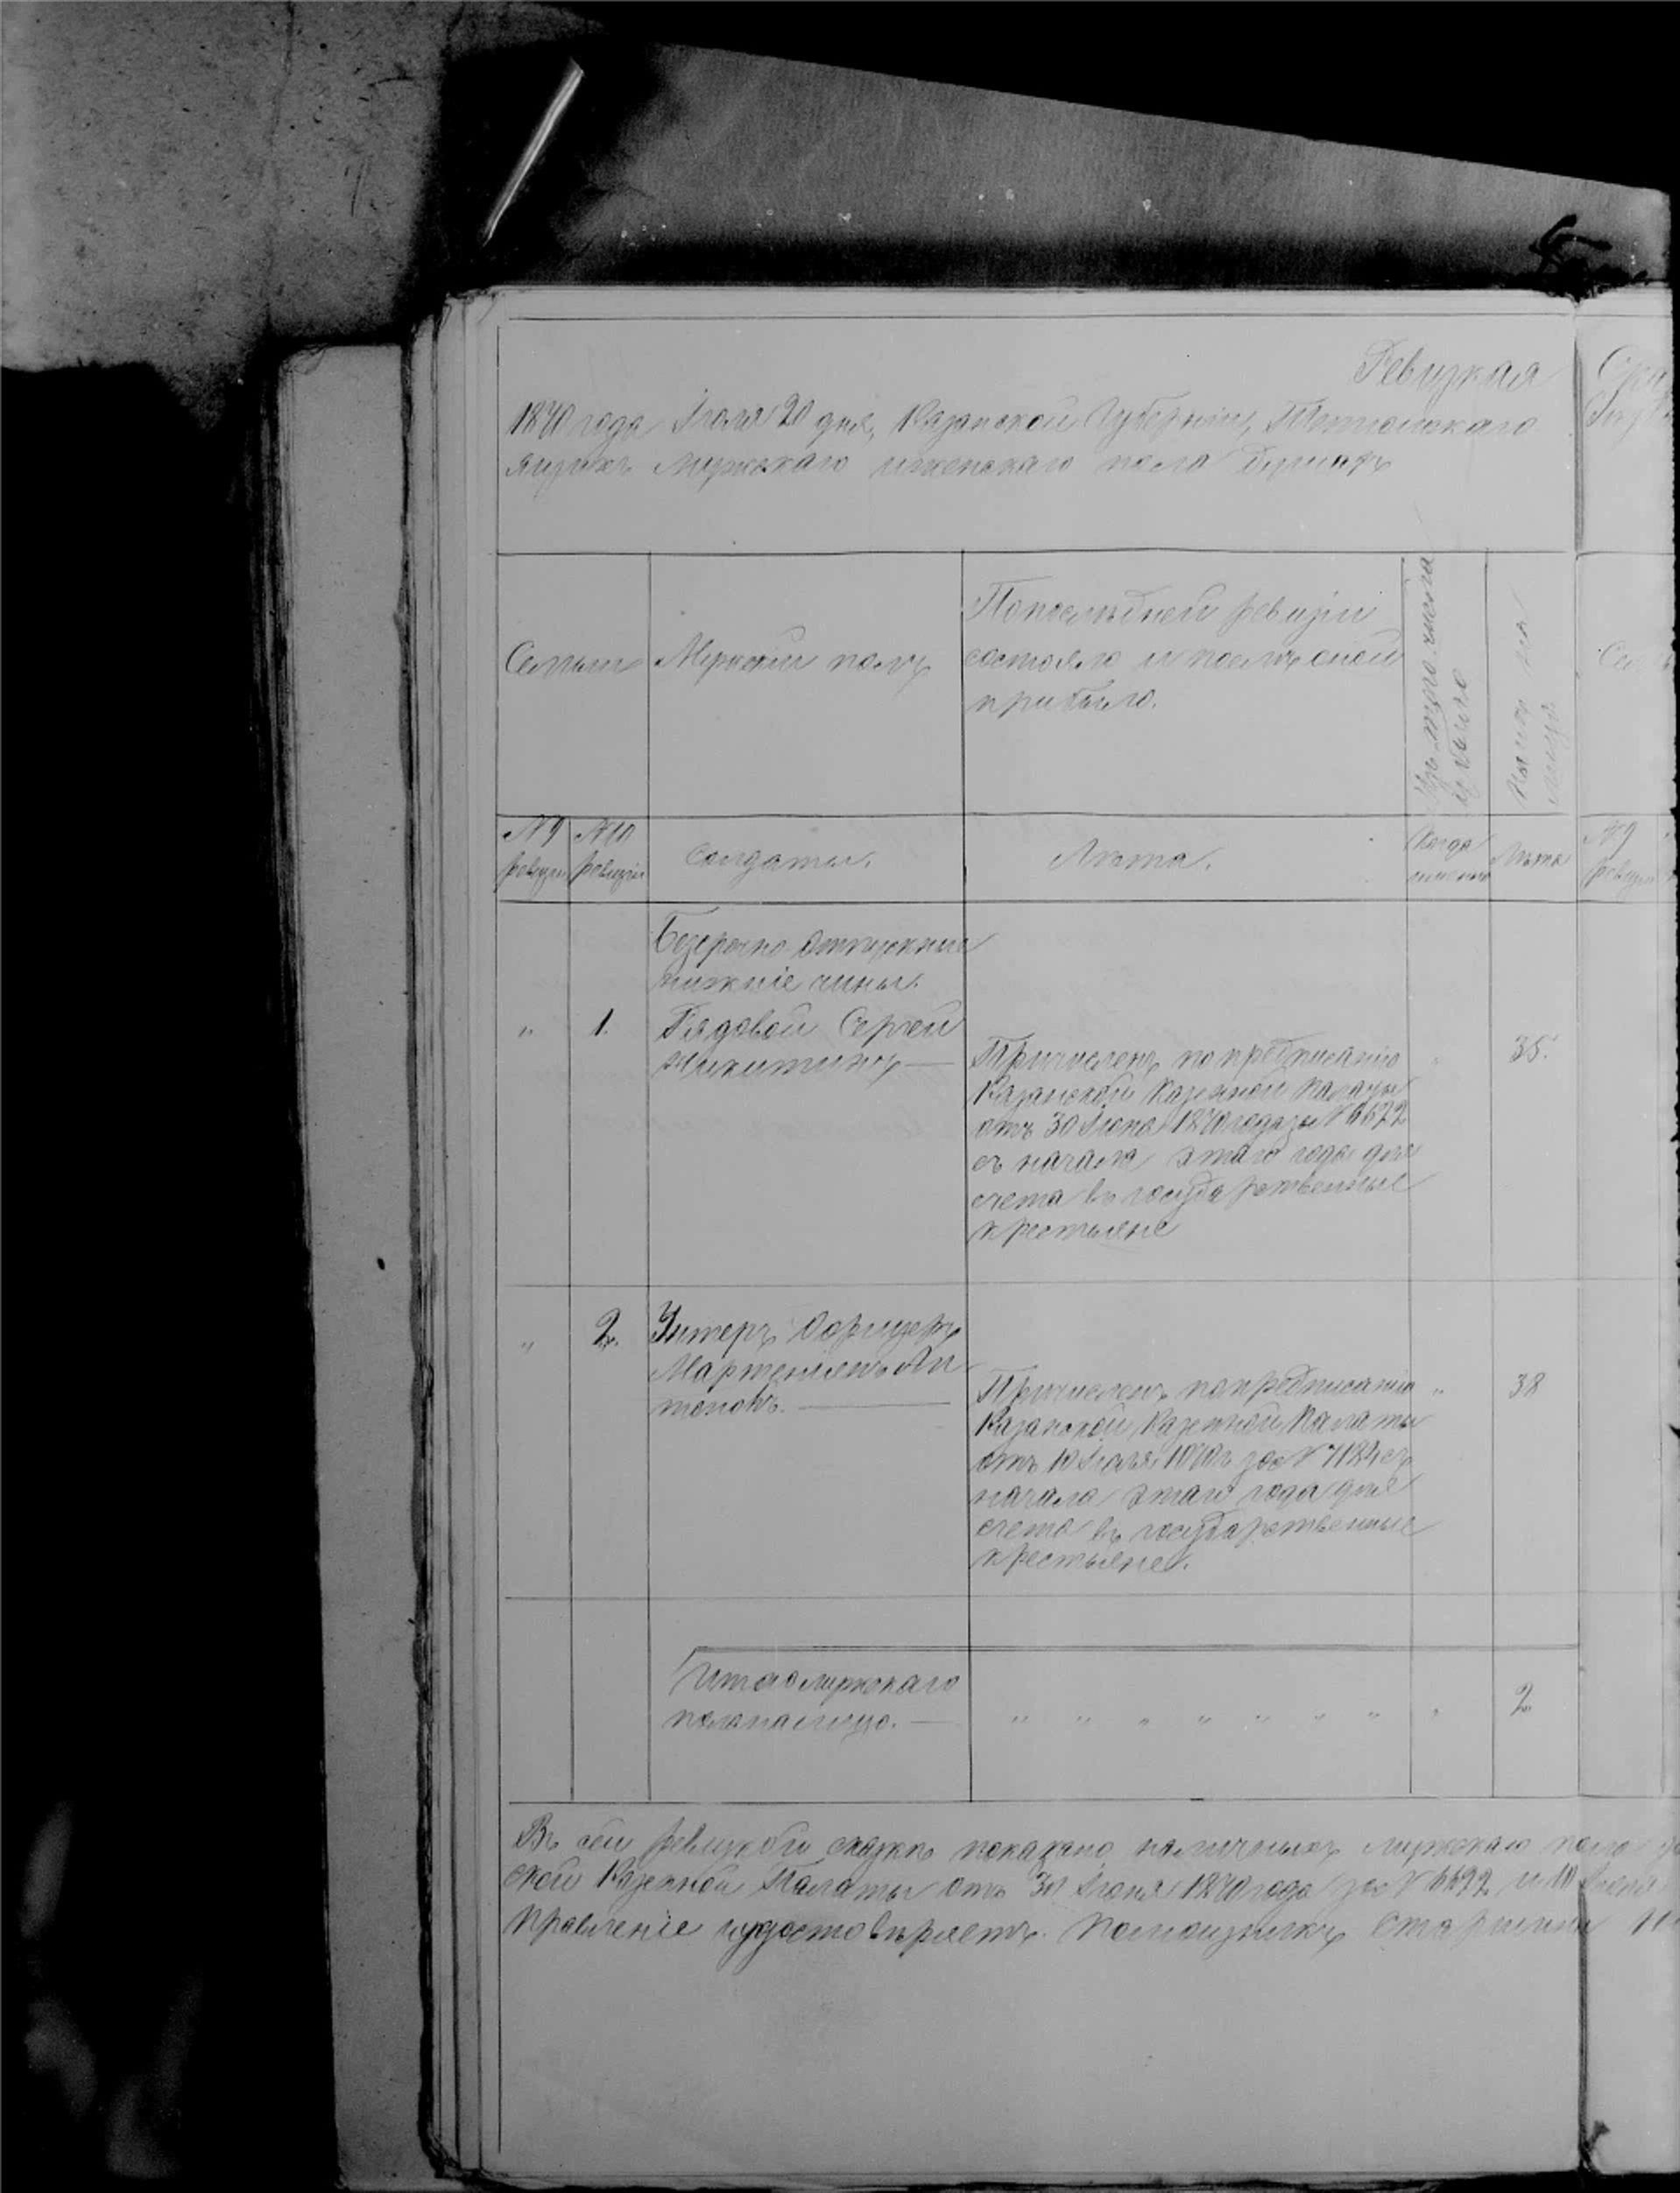 Ревизкая
1870 года Іюля 20 дня, Казанской Губерніи, Тетюшскаго
мужскаго иженскаго пола душахъ
Семьи
Мужской полъ
Попослѣдней ревизіи
состояло и послѣ оной
прибыло.
Изъ того числа
выбыло
Нынѣ на
лицо
№ 9
ревизіи
№ 10
ревизіи
Солдаты.
Лѣта.
Когда
именно
Лѣта
№ 9
ревизіи
Безсрочно отпускные
нижніе чины.
„ 1. Рядовой Сергей
Никитинъ —
Причисленъ по предписанію
Казанской Казенной Палаты
отъ 30 Іюня 1870 года за № 6622
съ начала этаго года для
счета въ государственные
крестьяне
35.
„ 2. Унтеръ Офицеръ
Мартемьянъ Ан
тоновъ. —
Причисленъ попредписанію
Казанской Казенной Палаты
отъ 10 Іюля 1870 г. за № 7184 съ
начала этаго года для
счета въ государственные
крестьяне.
„ 38
Итаго мужскаго
пола налицо. —
„ „ „ „ „ „ „ „ 2
Въ сей ревизкой сказкѣ показано наличныхъ мужскаго пола
ской Казенной Палаты отъ 30 Іюня 1870 года за № 6622 и 10 Іюля
Правленіе удостовѣряетъ. Помощникъ Старшины